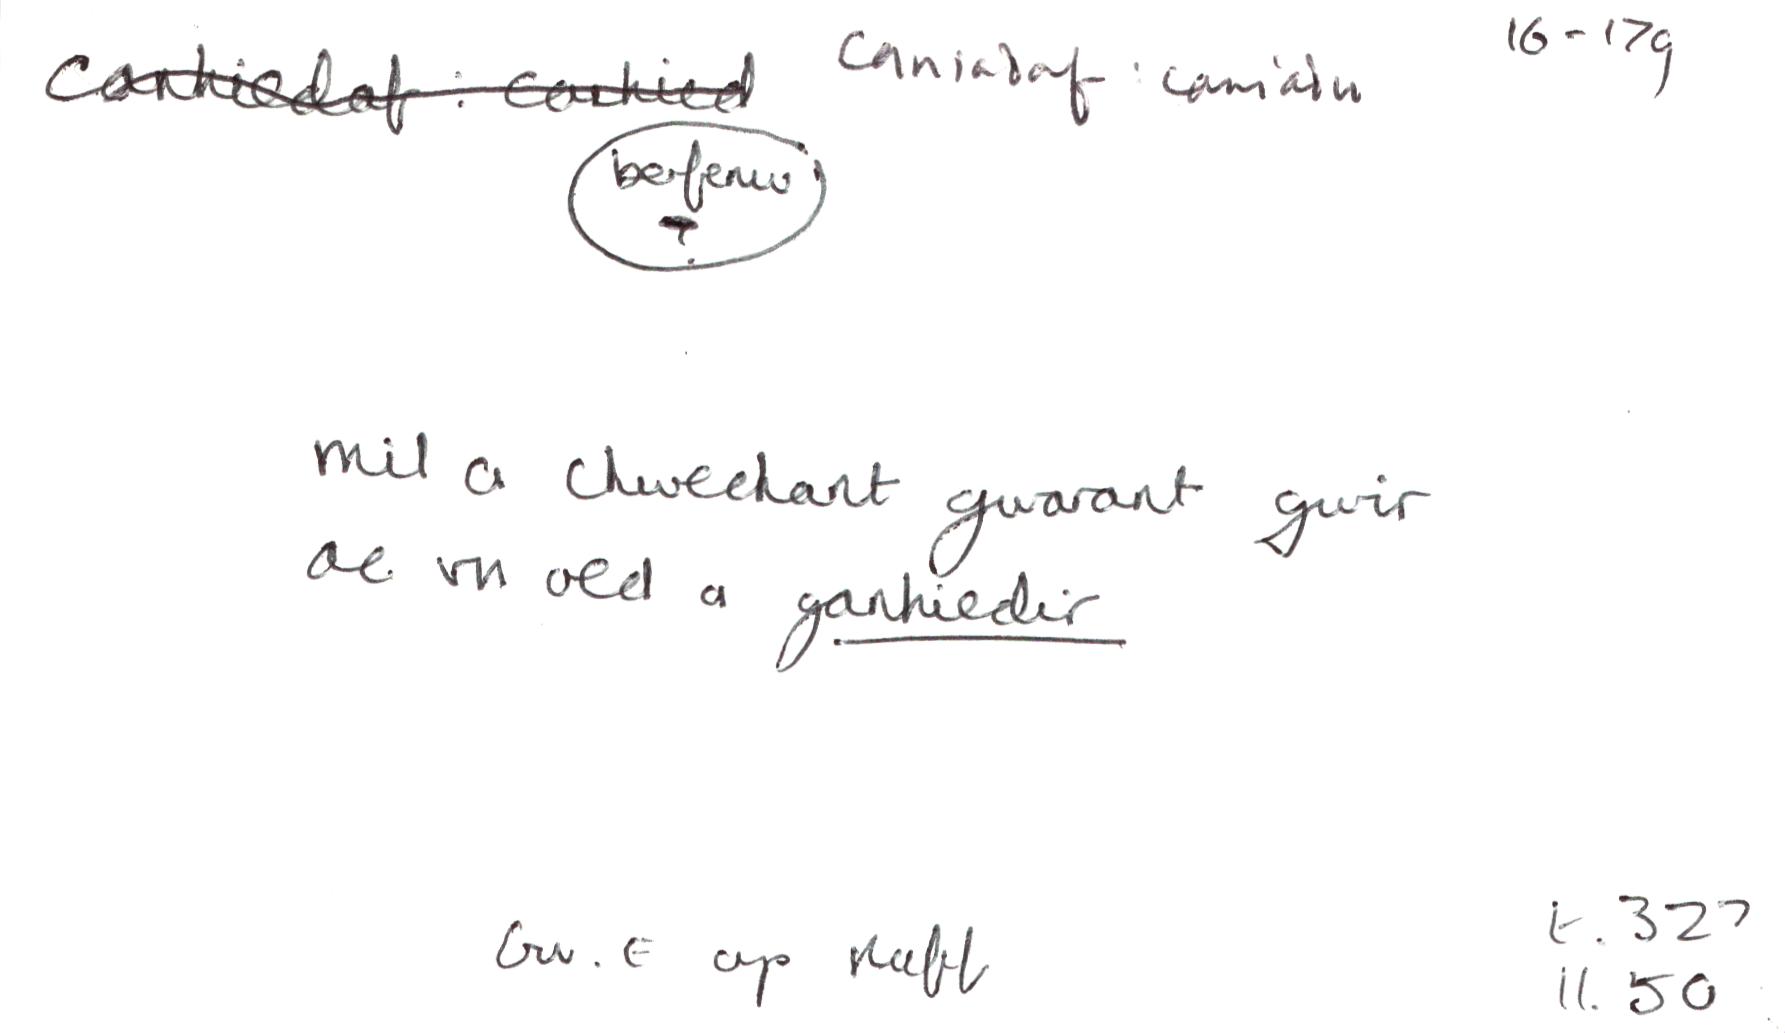 Canhiedaf : canhied   Caniadaf : caniadu   16-17g
berfenw
?
mil a chwechant gwarant gwir
ac vn oed a ganhiedir
Gw. E ap Raff   t. 327
ll. 50